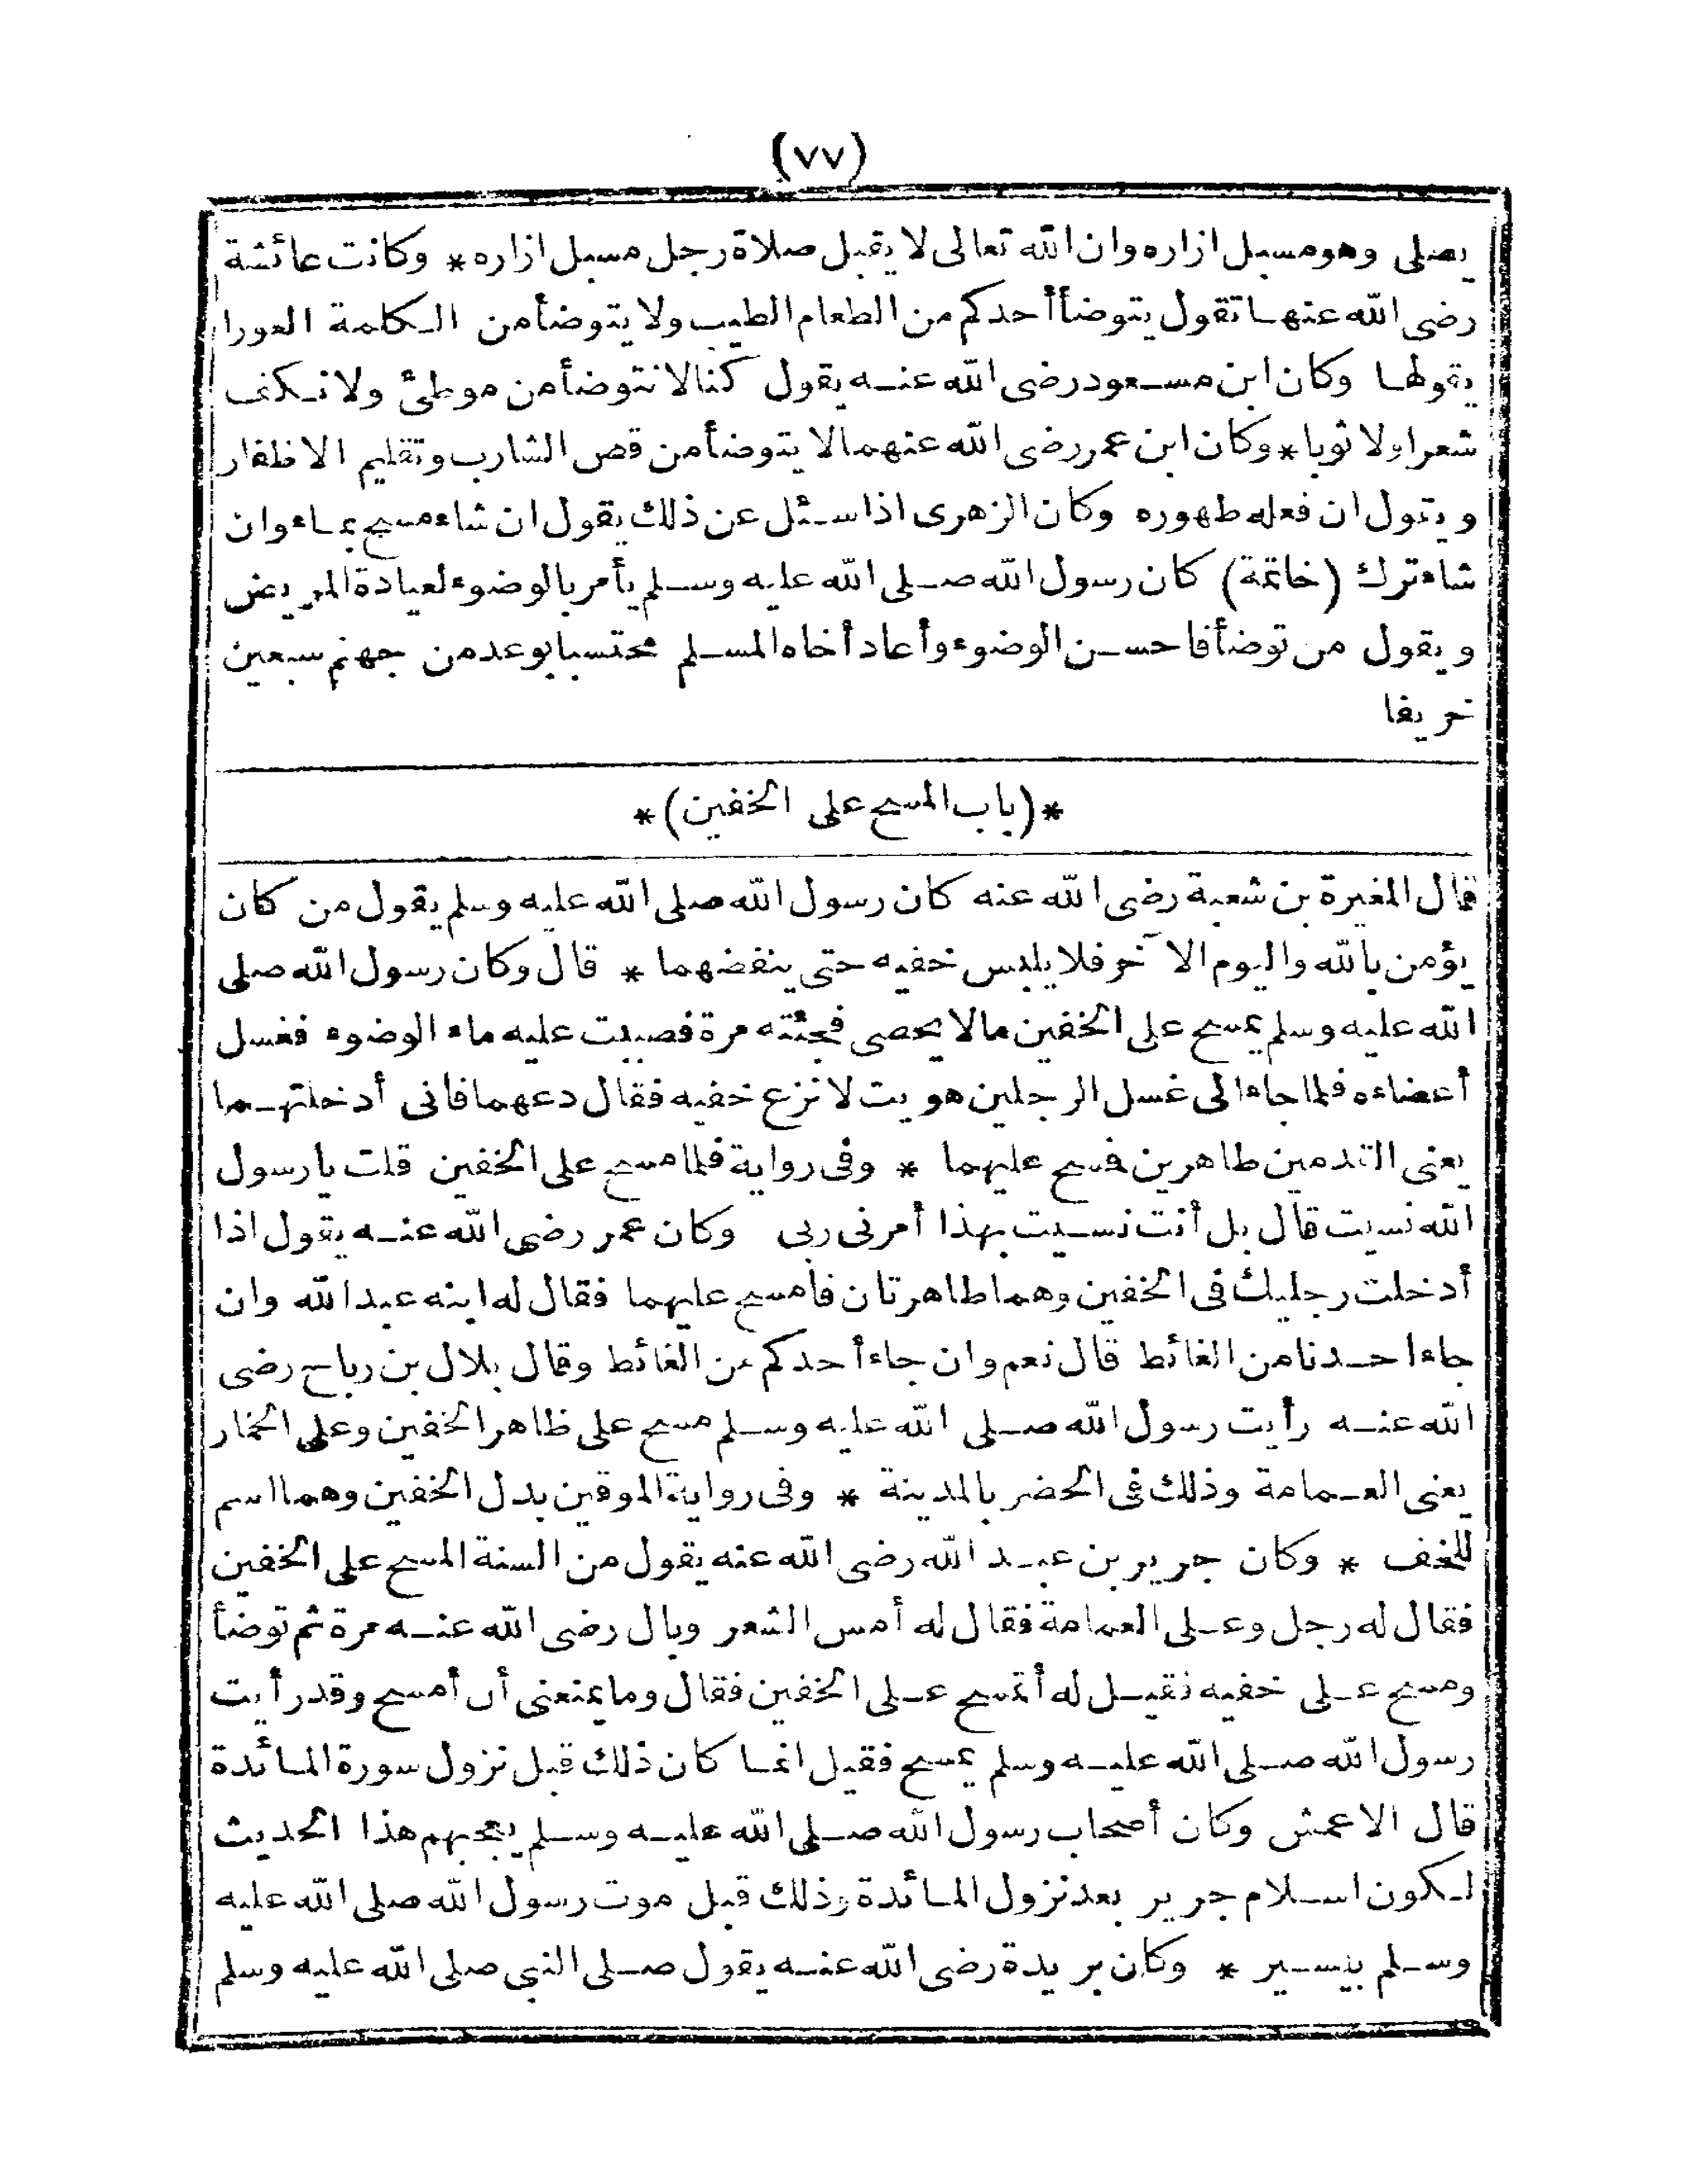 (٧٧)
يصلى وهو مسبل ازاره وان الله تعالى لا يقبل صلاة رجل مسبل ازاره * وكانت عائشة
رضى الله عنها تقول يتوضأ أحدكم من الطعام الطيب ولا يتوضأ من الكلمة العورا
يقولها وكان ابن مسعود رضى الله عنه يقول كنا لا نتوضأ من موطئ ولا نكف
شعرا ولا ثوبا * وكان ابن عمر رضى الله عنهما لا يتوضأ من قص الشارب وتقليم الاظفار
ويقول ان فعله طهوره وكان الزهرى اذا سئل عن ذلك يقول ان شاء مسح بماء وان
شاء ترك (خاتمة) كان رسول الله صلى الله عليه وسلم يأمر بالوضوء لعيادة المريض
ويقول من توضأ فاحسن الوضوء وأعاد أخاه المسلم محتسبا بوعد من جهنم سبعين
خريفا
*(باب المسح على الخفين)*
قال المغيرة بن شعبة رضى الله عنه كان رسول الله صلى الله عليه وسلم يقول من كان
يؤمن بالله واليوم الآخر فلا يلبس خفيه حتى ينفضهما * قال وكان رسول الله صلى
الله عليه وسلم يمسح على الخفين مالا يحصى فجئته مرة فصببت عليه ماء الوضوء فغسل
أعضاءه فلما جاء الى غسل الرجلين هويت لانزع خفيه فقال دعهما فانى أدخلتهما
يعنى القدمين طاهرين فمسح عليهما * وفى رواية فلما مسح على الخفين قلت يا رسول
الله نسيت قال بل أنت نسيت بهذا أمرنى ربى وكان عمر رضى الله عنه يقول اذا
أدخلت رجليك فى الخفين وهما طاهرتان فامسح عليهما فقال له ابنه عبد الله وان
جاء احدنا من الغائط قال نعم وان جاء أحدكم من الغائط وقال بلال بن رباح رضى
الله عنه رأيت رسول الله صلى الله عليه وسلم مسح على ظاهر الخفين وعلى الخمار
يعنى العمامة وذلك فى الحضر بالمدينة * وفى رواية الموقين بدل الخفين وهما اسم
للخف * وكان جرير بن عبد الله رضى الله عنه يقول من السنة المسح على الخفين
فقال له رجل وعلى العمامة فقال له أمس الشعر وبال رضى الله عنه مرة ثم توضأ
ومسح على خفيه فقيل له أتمسح على الخفين فقال وما يمنعنى أن أمسح وقد رأيت
رسول الله صلى الله عليه وسلم يمسح فقيل انما كان ذلك قبل نزول سورة المائدة
قال الاعمش وكان أصحاب رسول الله صلى الله عليه وسلم يعجبهم هذا الحديث
لكون اسلام جرير بعد نزول المائدة وذلك قبل موت رسول الله صلى الله عليه
وسلم بيسير * وكان بريدة رضى الله عنه يقول صلى النبى صلى الله عليه وسلم